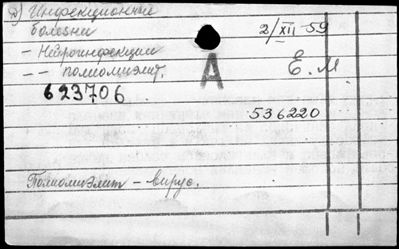 Д) Инфекционные
болезни
2/XII 59
- Нейроинфекции
-- полиомиэлит.
А
Е. М
623706
536220
Полиомиэлит - вирус.